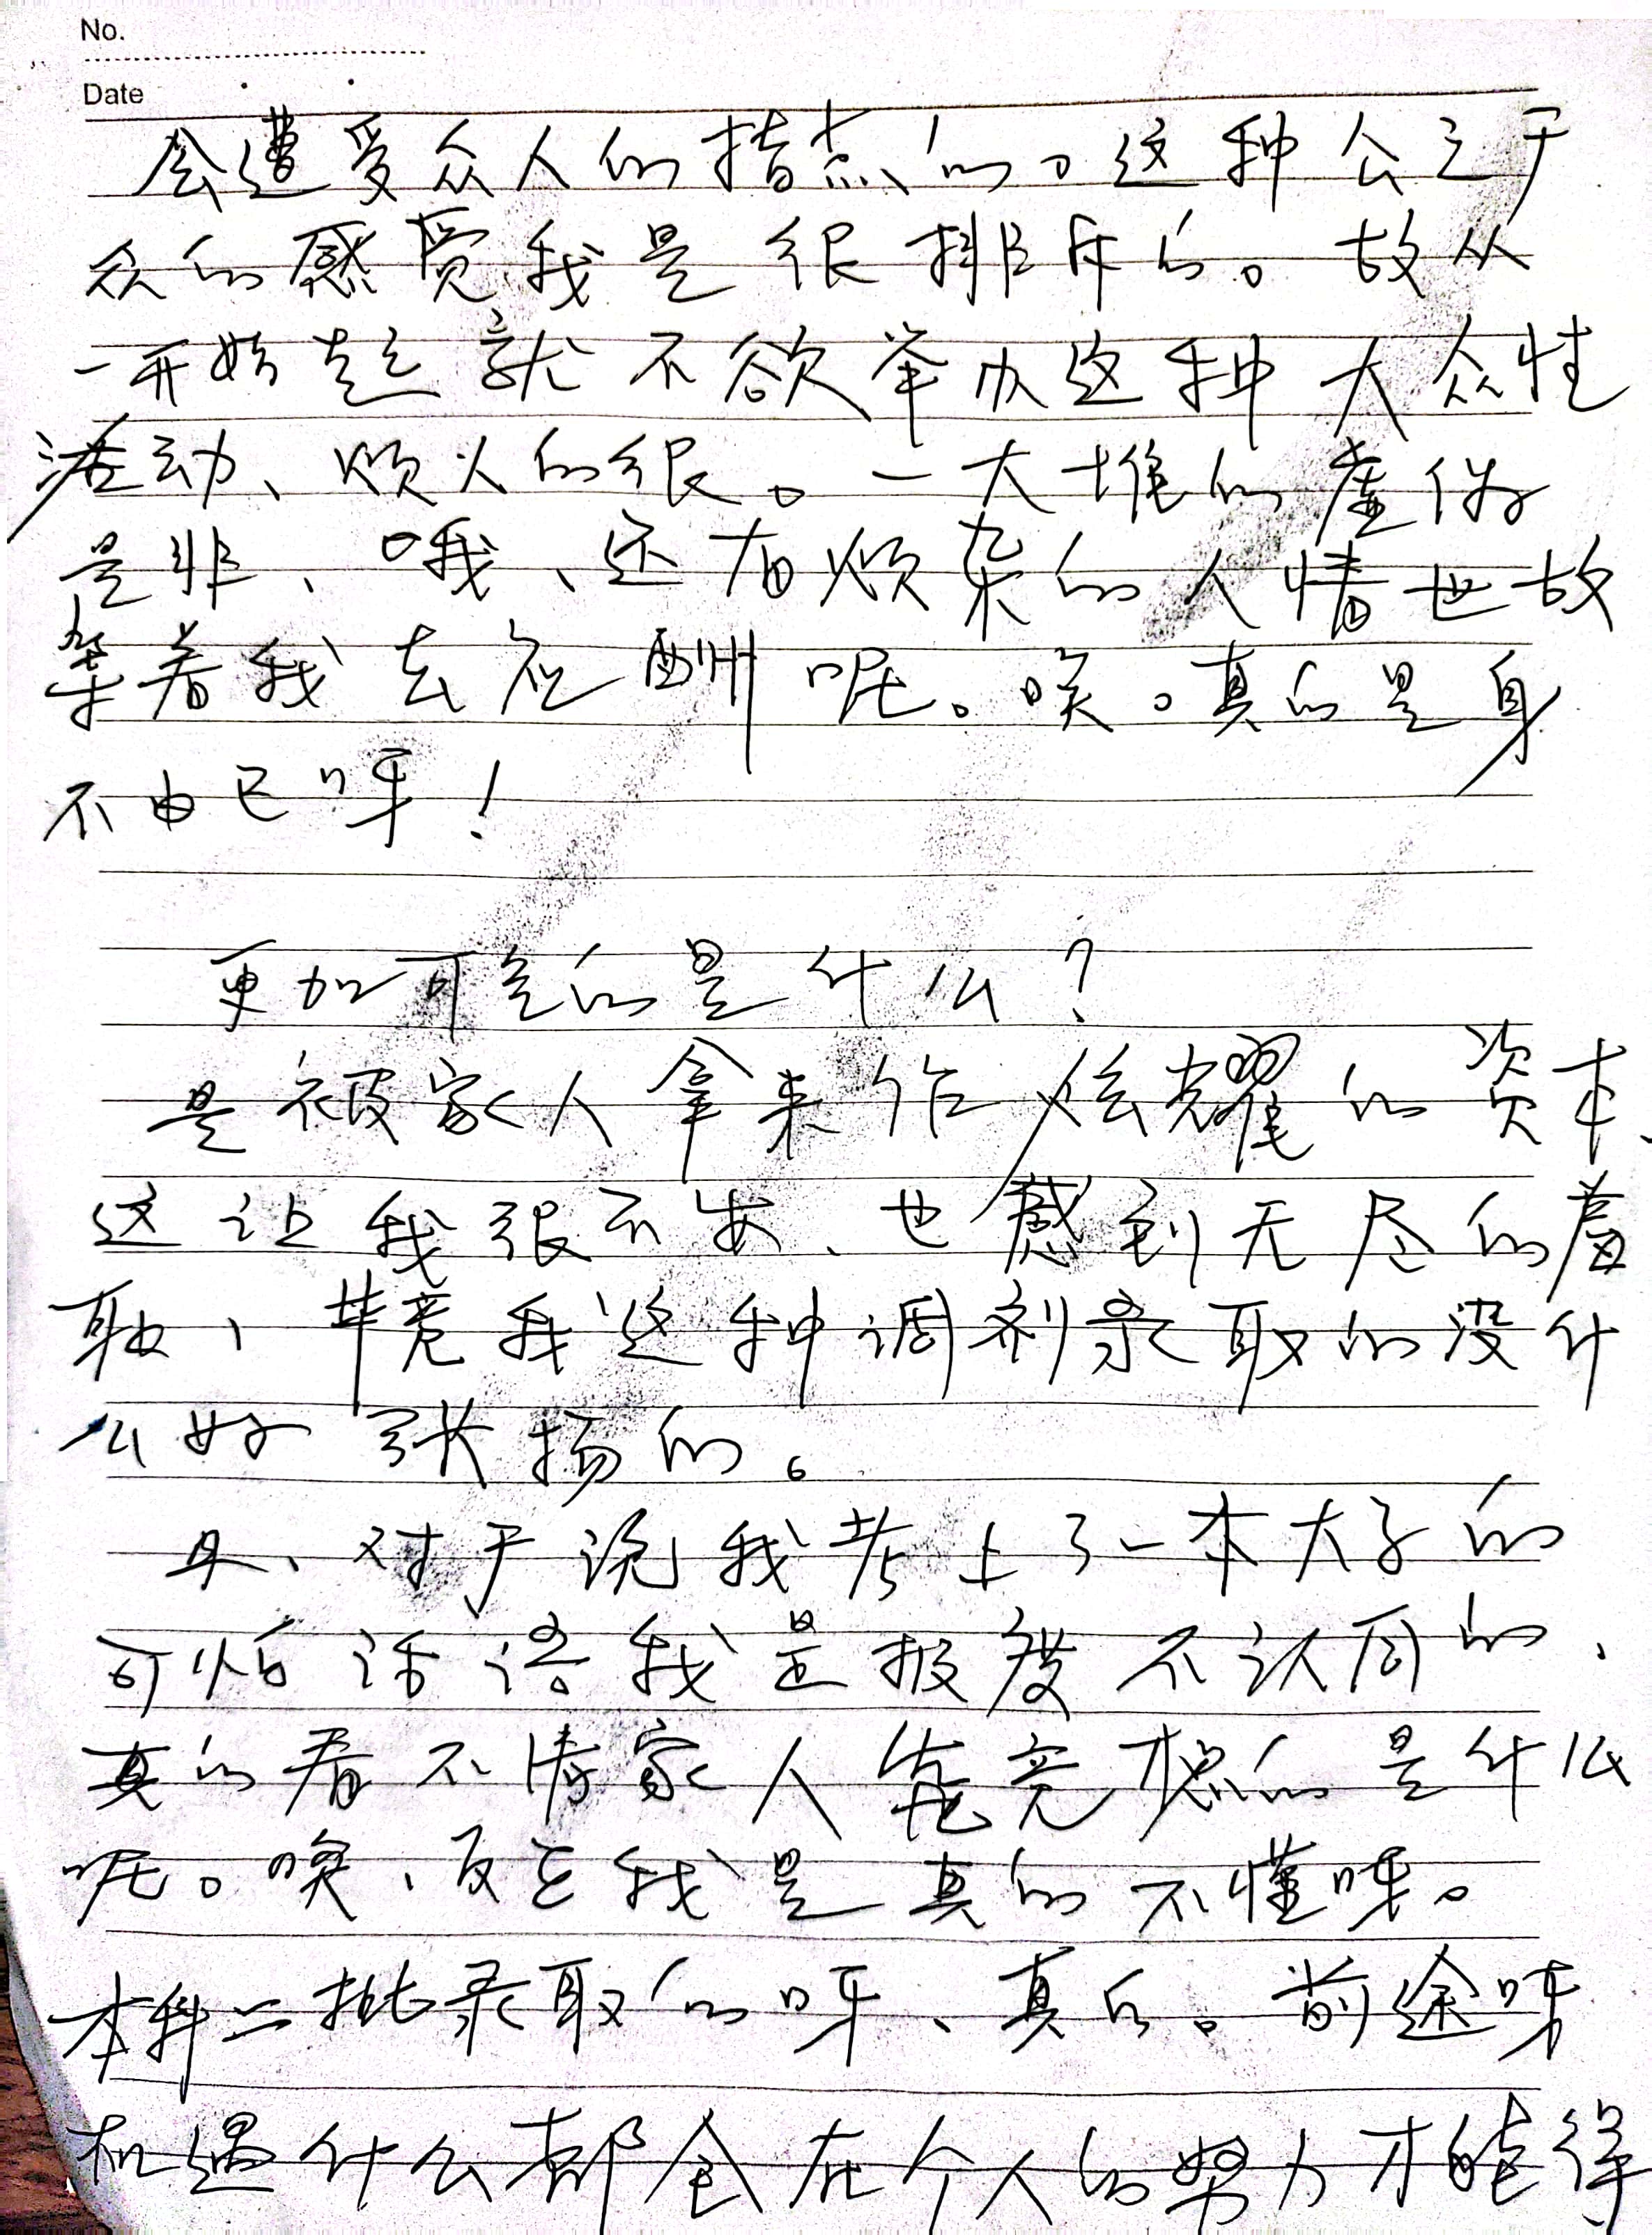 No.
Date
会遭受众人的指点的。这种公之于
众的感觉我是很排斥的。故从
一开始起就不欲举办这种大众性
活动、烦人的很。一大堆的虚伪
是非、哦、还有烦杂的人情世故
等着我去应酬呢。唉。真的是身
不由已呀！
更加可气的是什么？
是被家人拿来作炫耀的资本、
这让我很不安、也感到无尽的羞
耻、毕竟我这种调剂录取的没什
么好张扬的。
且、对于说我考上了一本大学的
可怕话语我是报度不认同的、
真的看不清家人究竟想的是什么
呢。唉、反正我是真的不懂呀。
本科二批录取的呀、真的。前途呀
机遇什么都全在个人的努力才能得